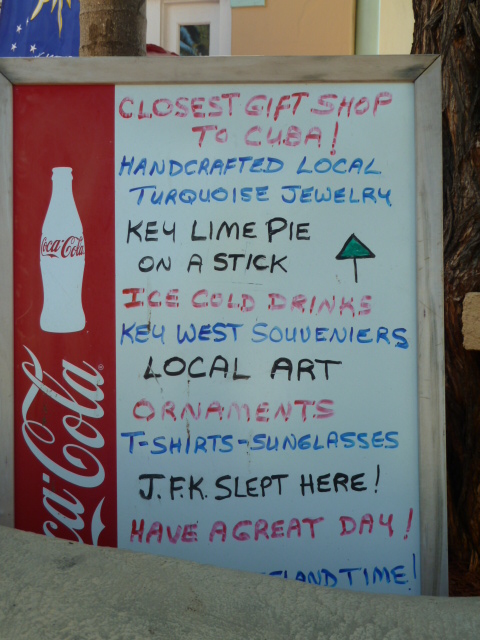 CLOSEST GIFT SHOP
TO CUBA!
HANDCRAFTED LOCAL
TURQUOISE JEWELRY
KEY LIME PIE
ON A STICK
ICE COLD DRINKS
KEY WEST SOUVENIERS
LOCAL ART
ORNAMENTS
T-SHIRTS-SUNGLASSES
J.F.K. SLEPT HERE!
HAVE A GREAT DAY!
TIME!
Coca-Cola
Coca-Cola